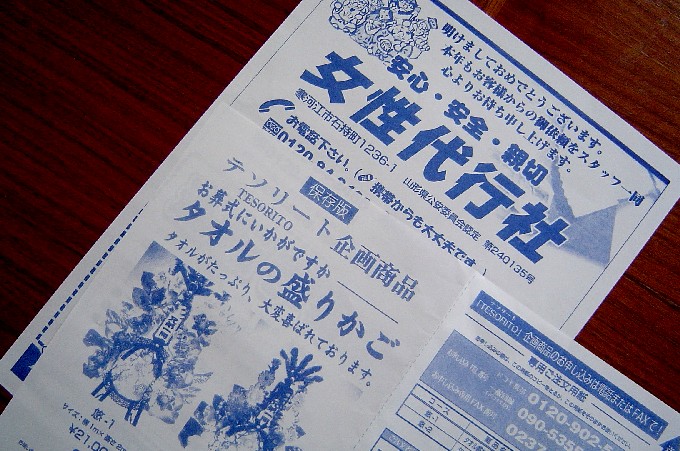 明けましておめでとうございます。
本年もお客様からの御依頼をスタッフ一同
心よりお待ち申し上げます。
安心・安全・親切
女性代行社
寒河江市石持町1236-1
山形県公安委員会認定 第240135号
お電話下さい。
携帯からも大丈夫です
0120
保存版
テソリート企画商品
TESORITO
お葬式にいかがですか
タオルの盛りかご
タオルがたっぷり、大変喜ばれております。
悠-1
¥21,00
テソリート
「TESORITO」企画商品のお申し込みは電話またはFAXで!
専用ご注文用紙
0120-902-5
090-535
0237
コース
悠-1
悠-2